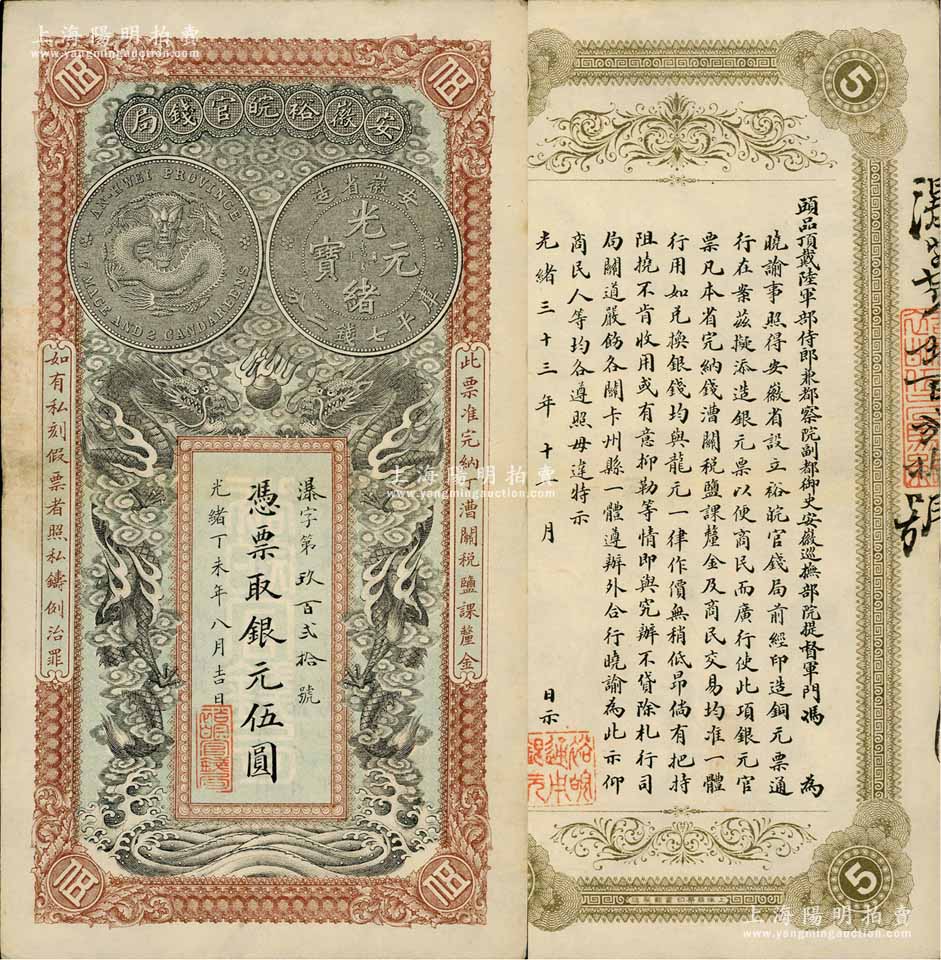 上海陽明拍賣
www.yangmingauction.com
安徽裕皖官錢局
AN-HWEI PROVINCE
7 MACE AND 2 CANDAREENS
安徽省造
光緒元寶
庫平七錢二分
此票准完納丁漕關稅鹽課釐金
如有私刻假票者照私鑄例治罪
瀑字第玖百弍拾號
憑票取銀元伍圓
光緒丁未年八月吉日
上海陽明拍賣
www.yangmingauction.com
5
頭品頂戴陸軍部侍郎兼都察院副都御史安徽巡撫部院提督軍門馮 為
曉諭事照得安徽省設立裕皖官錢局前經印造銅元票通
行在案茲擬添造銀元票以便商民而廣行使此項銀元官
票凡本省完納錢漕關稅鹽課釐金及商民交易均准一體
行用如兌換銀錢均與龍元一律作價無稍低昂倘有把持
阻撓不肯收用或有意抑勒等情即與究辦不貸除札行司
局關道嚴飭各關卡州縣一體遵辦外合行曉諭為此示仰
商民人等均各遵照毋違特示
光緒三十三年十月 日示
5
上海陽明拍賣
www.yangmingauction.com